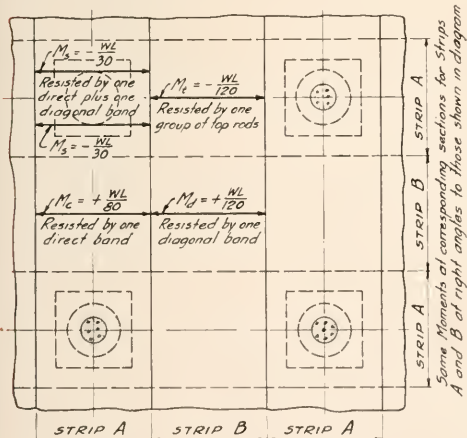 Ms = - WL/30
Resisted by one
direct plus one
diagonal band
Ms = - WL/30
Mt = - WL/120
Resisted by one
group of top rods
Mc = + WL/80
Resisted by one
direct band
Md = + WL/120
Resisted by one
diagonal band
STRIP A
STRIP B
STRIP A
Same Moments at corresponding sections for Strips
A and B at right angles to those shown in diagram
STRIP A
STRIP B
STRIP A